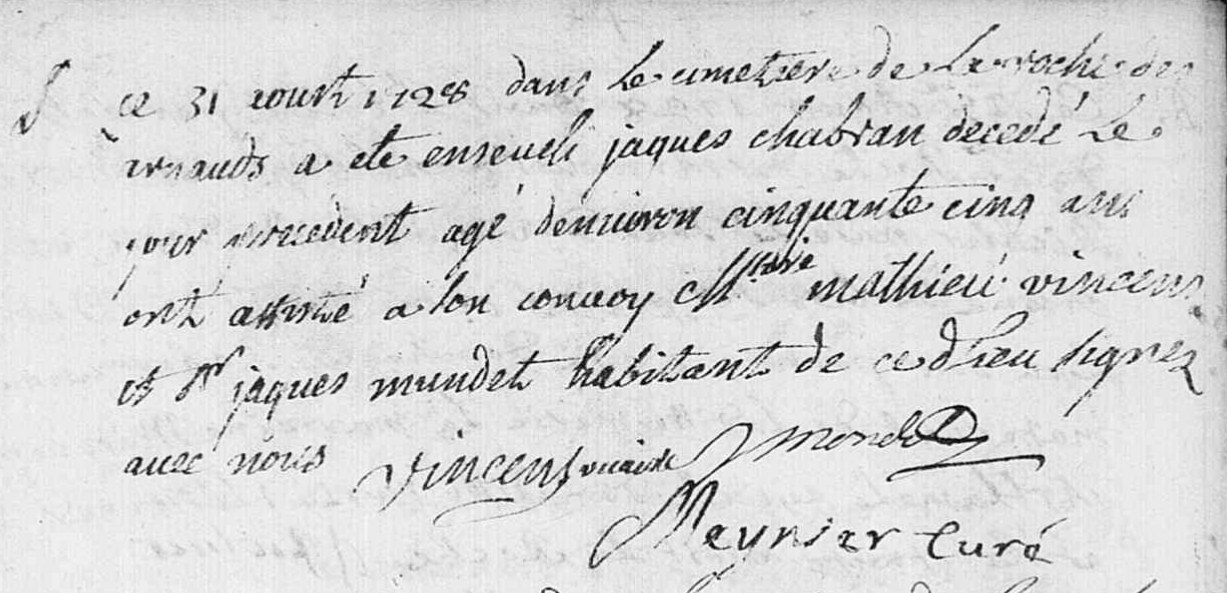 ce 31 aoust 1728 dans le cimetiere de la roche des
arnauds a ete enseveli jaques chabran decedé le
jour precedent agé denuiron cinquante cinq ans
ont assisté a son conuoy Mre mathieu vincens
et Sr jaques mundet habitant de ce d lieu signez
auec nous vincens vicaire mondet
Meynier curé